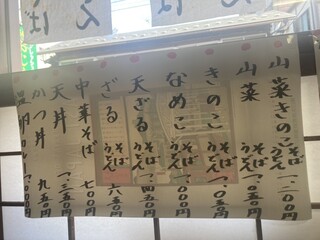 山菜きのこ そば うどん 一、二〇〇円
山菜 そば うどん 一、〇五〇円
きのこ そば うどん 一、〇五〇円
なめこ そば うどん 一、〇〇〇円
天ざる そば うどん 一、四五〇円
ざる そば うどん 六五〇円
中華そば 七〇〇円
天丼 一、三五〇円
かつ丼 九五〇円
一、〇〇〇円